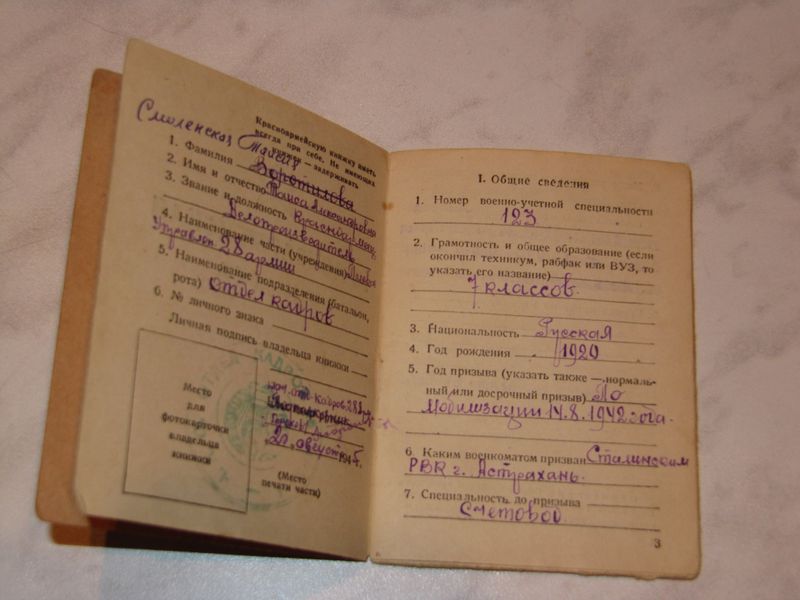 Красноармейскую книжку иметь
всегда при себе. Не имеющих
книжки — задерживать
Смоленская Таисия
1. Фамилия Воротилова
2. Имя и отчество Таиса Александровна
3. Звание и должность Красноармеец
Делопроизводитель
4. Наименование части (учреждения)
Управлен. 28 армии
5. Наименование подразделения (батальон,
рота) отдел кадров
6. № личного знака
Личная подпись владельца книжки
Место
для
фотокарточки
владельца
книжки
нач. отд. кадров 28
21 август 194
(Место
печати части)
I. Общие сведения
1. Номер военно-учетной специальности
123
2. Грамотность и общее образование (если
окончил техникум, рабфак или ВУЗ, то
указать его название)
7 классов.
3. Национальность Русская
4. Год рождения 1920
5. Год призыва (указать также — нормаль-
ный или досрочный призыв) По
Мобилизации 14.8.1942 года.
6 Каким военкоматом призван Сталинским
РВК г. Астрахань.
7. Специальность до призыва
Счетовод
3